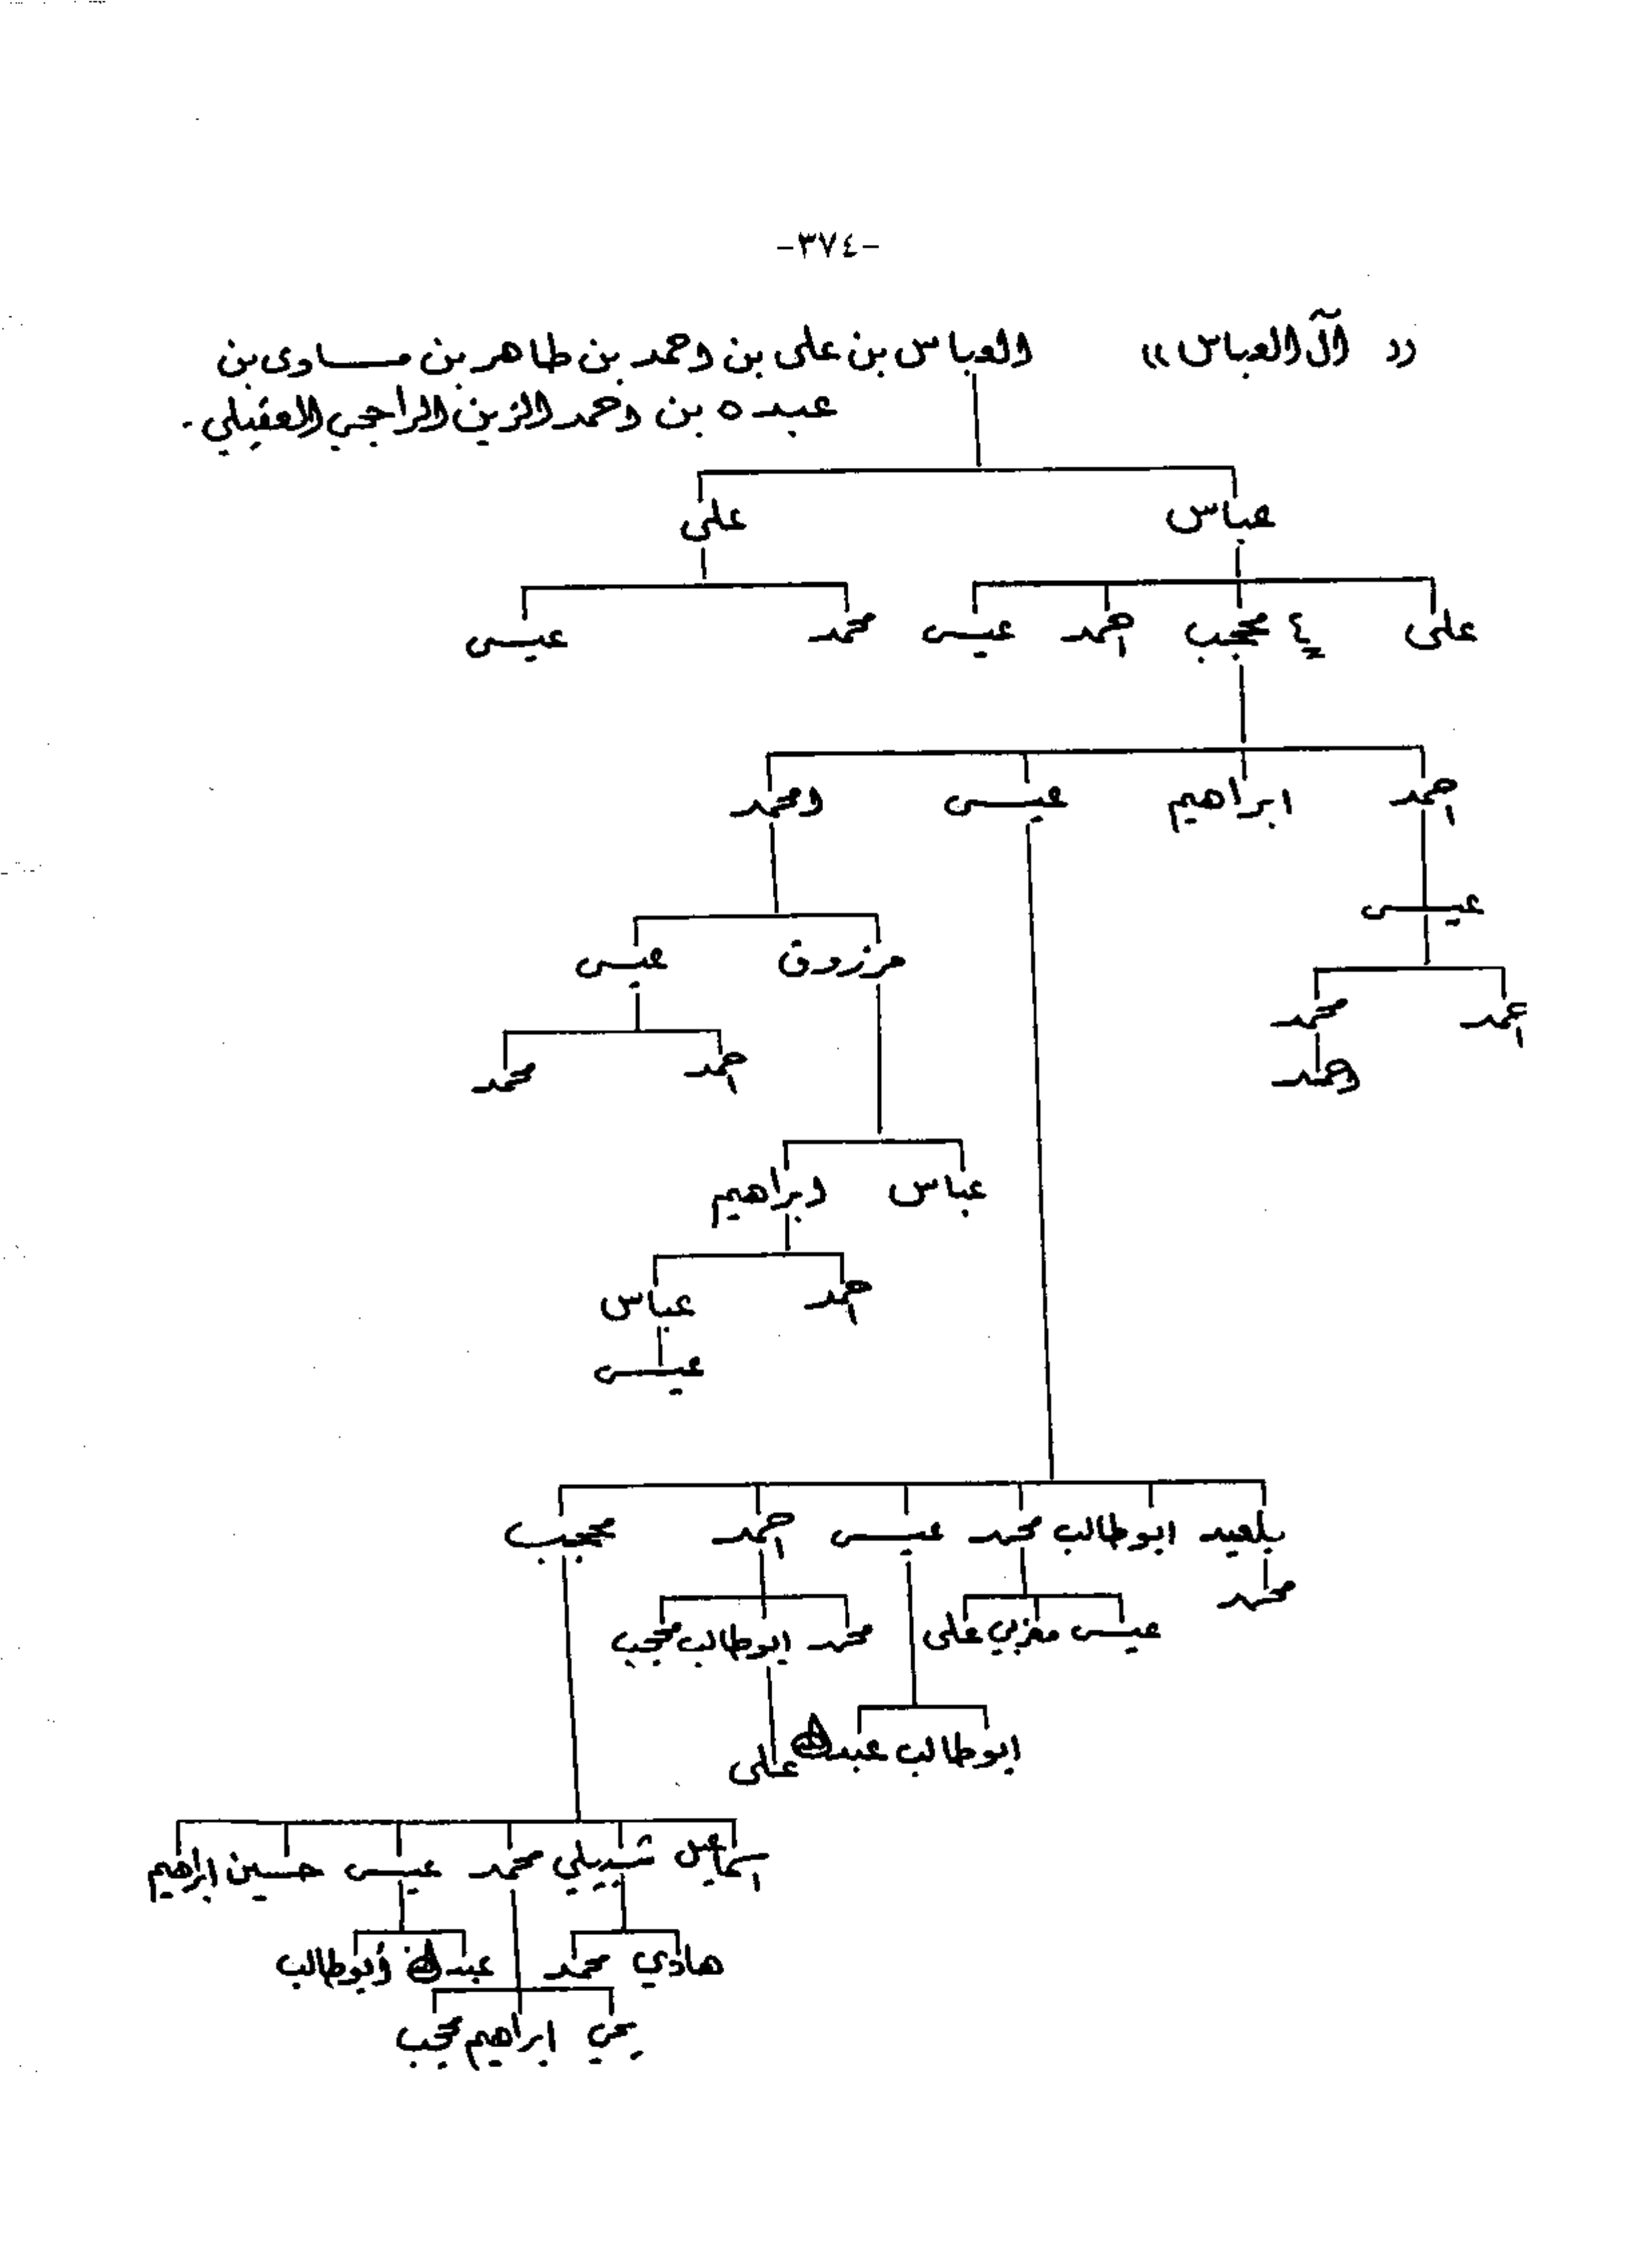 -٣٧٤-
(( آل العباس )) العباس بن على بن احمد بن طاهر بن مساوى بن
عبده بن احمد الزين الراجحي العقيلي .
عباس على
على محجب احمد عيسى محمد عيسى
احمد ابراهيم عيسى امحمد
عيسى
مرزوق عيسى
احمد محمد
احمد
احمد محمد
عباس ابراهيم
احمد عباس
عيسى
بلعيد ابوطالب محمد عيسى احمد محجب
محمد
عيسى مغربي على محمد ابوطالب محجب
ابوطالب عبدالله على
اسماعيل شبيلي محمد عيسى حسين ابراهيم
هادي محمد عبدالله أبوطالب
يحي ابراهيم محجب